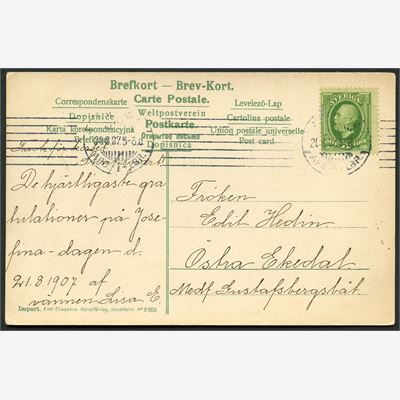 Brefkort — Brev-Kort.
Correspondenzkarte Carte Postale. Levelező-Lap
Dopisnice Weltpostverein Cartolina postale
Karta korespondencyjna Postkarte. Union postale universelle
Briefkaart Открытое письмо Post card
Dopisnica
SVERIGE
Tack för kortet
De hjärtligaste gra
tulationer på Jose
fina-dagen d.
21.8.1907 af
vännen Lisa E.
Fröken
Edit Hedin.
Östra Ekedal.
Medf. Gustafsbergsbåt.
Import. Axel Eliassons Konstförlag, Stockholm No 9358